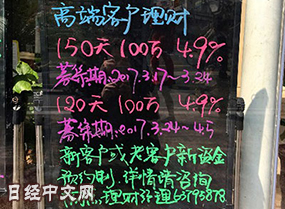 高端客户理财
150天 100万 4.9%
募集期:2017.3.17~3.24
120天 100万 4.9%
募集期:2017.3.24~4.5
新客户或老客户新资金
预约制 详情请咨询
理财经理63795878
日经中文网